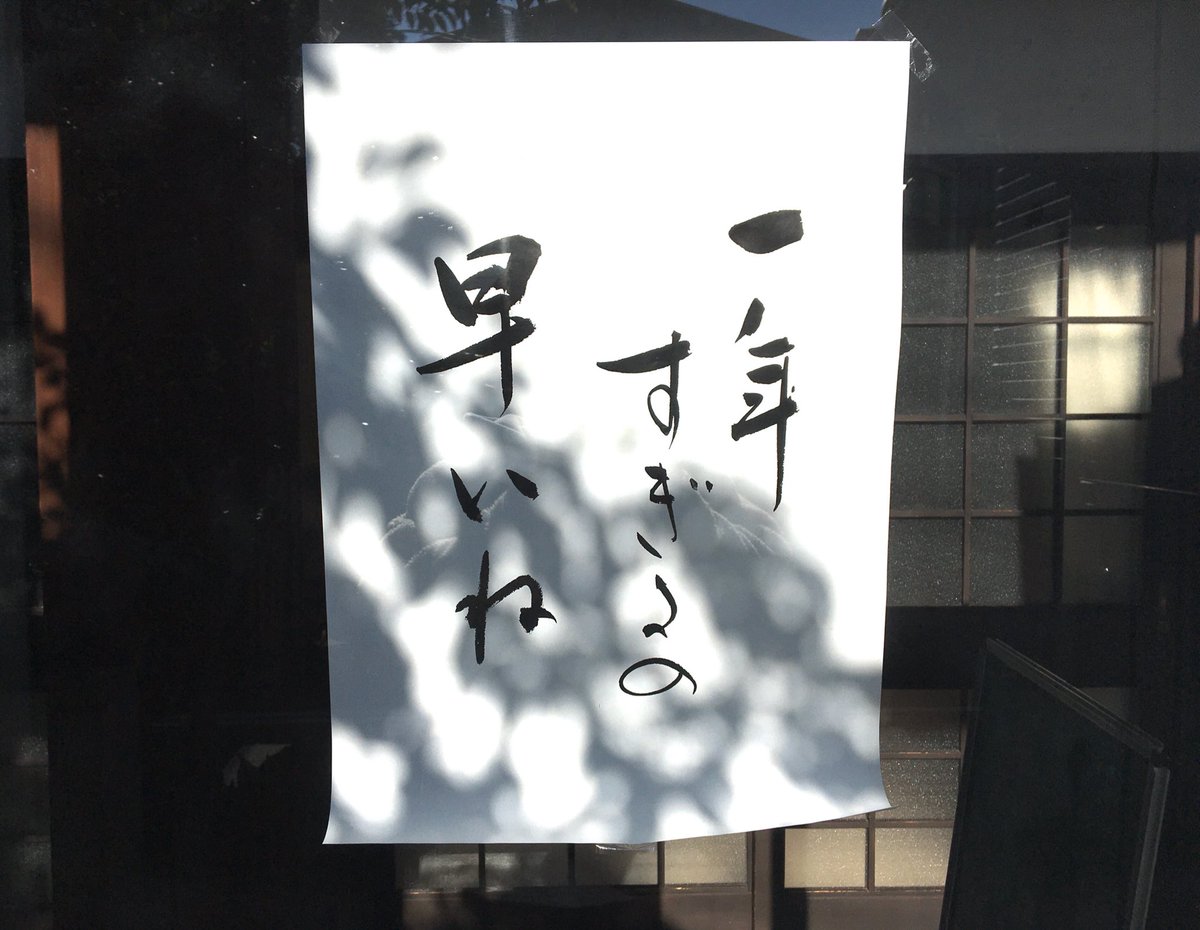 一年
すぎるの
早いね